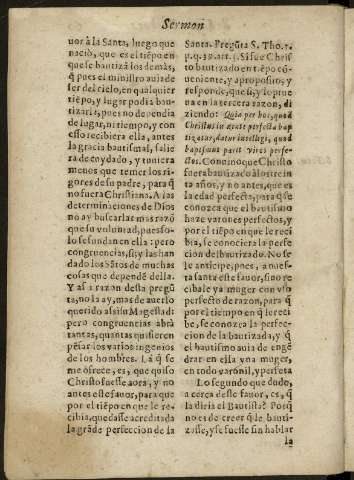 Sermon
uor à la Santa, luego que
naciò, que es el tiẽpo en
que se bautizã los demàs,
q̃ pues el ministro auia de
ser del cielo, en qualquier
tiẽpo, y lugar podia bau-
tizarla, pues no dependia
de lugar, ni tiempo, y con
esso recibiera ella, antes
la gracia bautismal, salie
ra de cuydado, y tuuiera
menos que temer los ri-
gores de su padre, para q̃
no fuera Christiana. A las
determinaciones de Dios
no ay buscarlas mas razõ
que su voluntad, pues so-
lo se fundan en ella: pero
congruencias, si; y las han
dado los Sãtos de muchas
cosas que dependẽ della.
Y assi razon desta pregũ
ta, no la ay, mas de auerlo
querido assi su Magestad:
pero congruencias abrà
tantas, quantas quisieren
pẽsar los varios ingenios
de los hombres. La q̃ se
me ofrece, es, que quiso
Christo fuesse aora, y no
antes este fauor, para que
por el tiẽpo en que le re-
cibia, quedasse acreditada
la grãde perfeccion de la
Santa. Pregũta S. Tho. 3.
p. q. 39. art. 3. Si fue Chris
to bautizado en tiẽpo cõ-
ueniente, y a proposito; y
responde, que si, y lo prue
ua en la tercera razon, di
ziendo: Quia per hoc, quod
Christus in ætate perfecta bap
tizatur, datur intellegi, quod
baptismus parit viros perfe-
ctos. Conuino que Christo
fuera bautizado à los trein
ta años, y no antes, que es
la edad perfecta, para q̃ se
conozca que el bautismo
haze varones perfectos, y
por el tiẽpo en que le reci
bia, se conociera la perfe
cion del bautizado. No se
le anticipe, pues, a nues-
tra santa este fauor, sino re
cibale ya muger con vso
perfecto de razon, para q̃
por el tiempo en q̃ le reci
be, se conozca la perfec-
cion de la bautizada, y q̃
el bautismo auia de engẽ
drar en ella vna muger,
en todo varonil, y perfeta
Lo segundo que dudo,
a cerca deste fauor, es, q̃
la diria el Bautista? Porq̃
no es de creer q̃ le bauti-
zasse, y se fuesse sin hablar
la